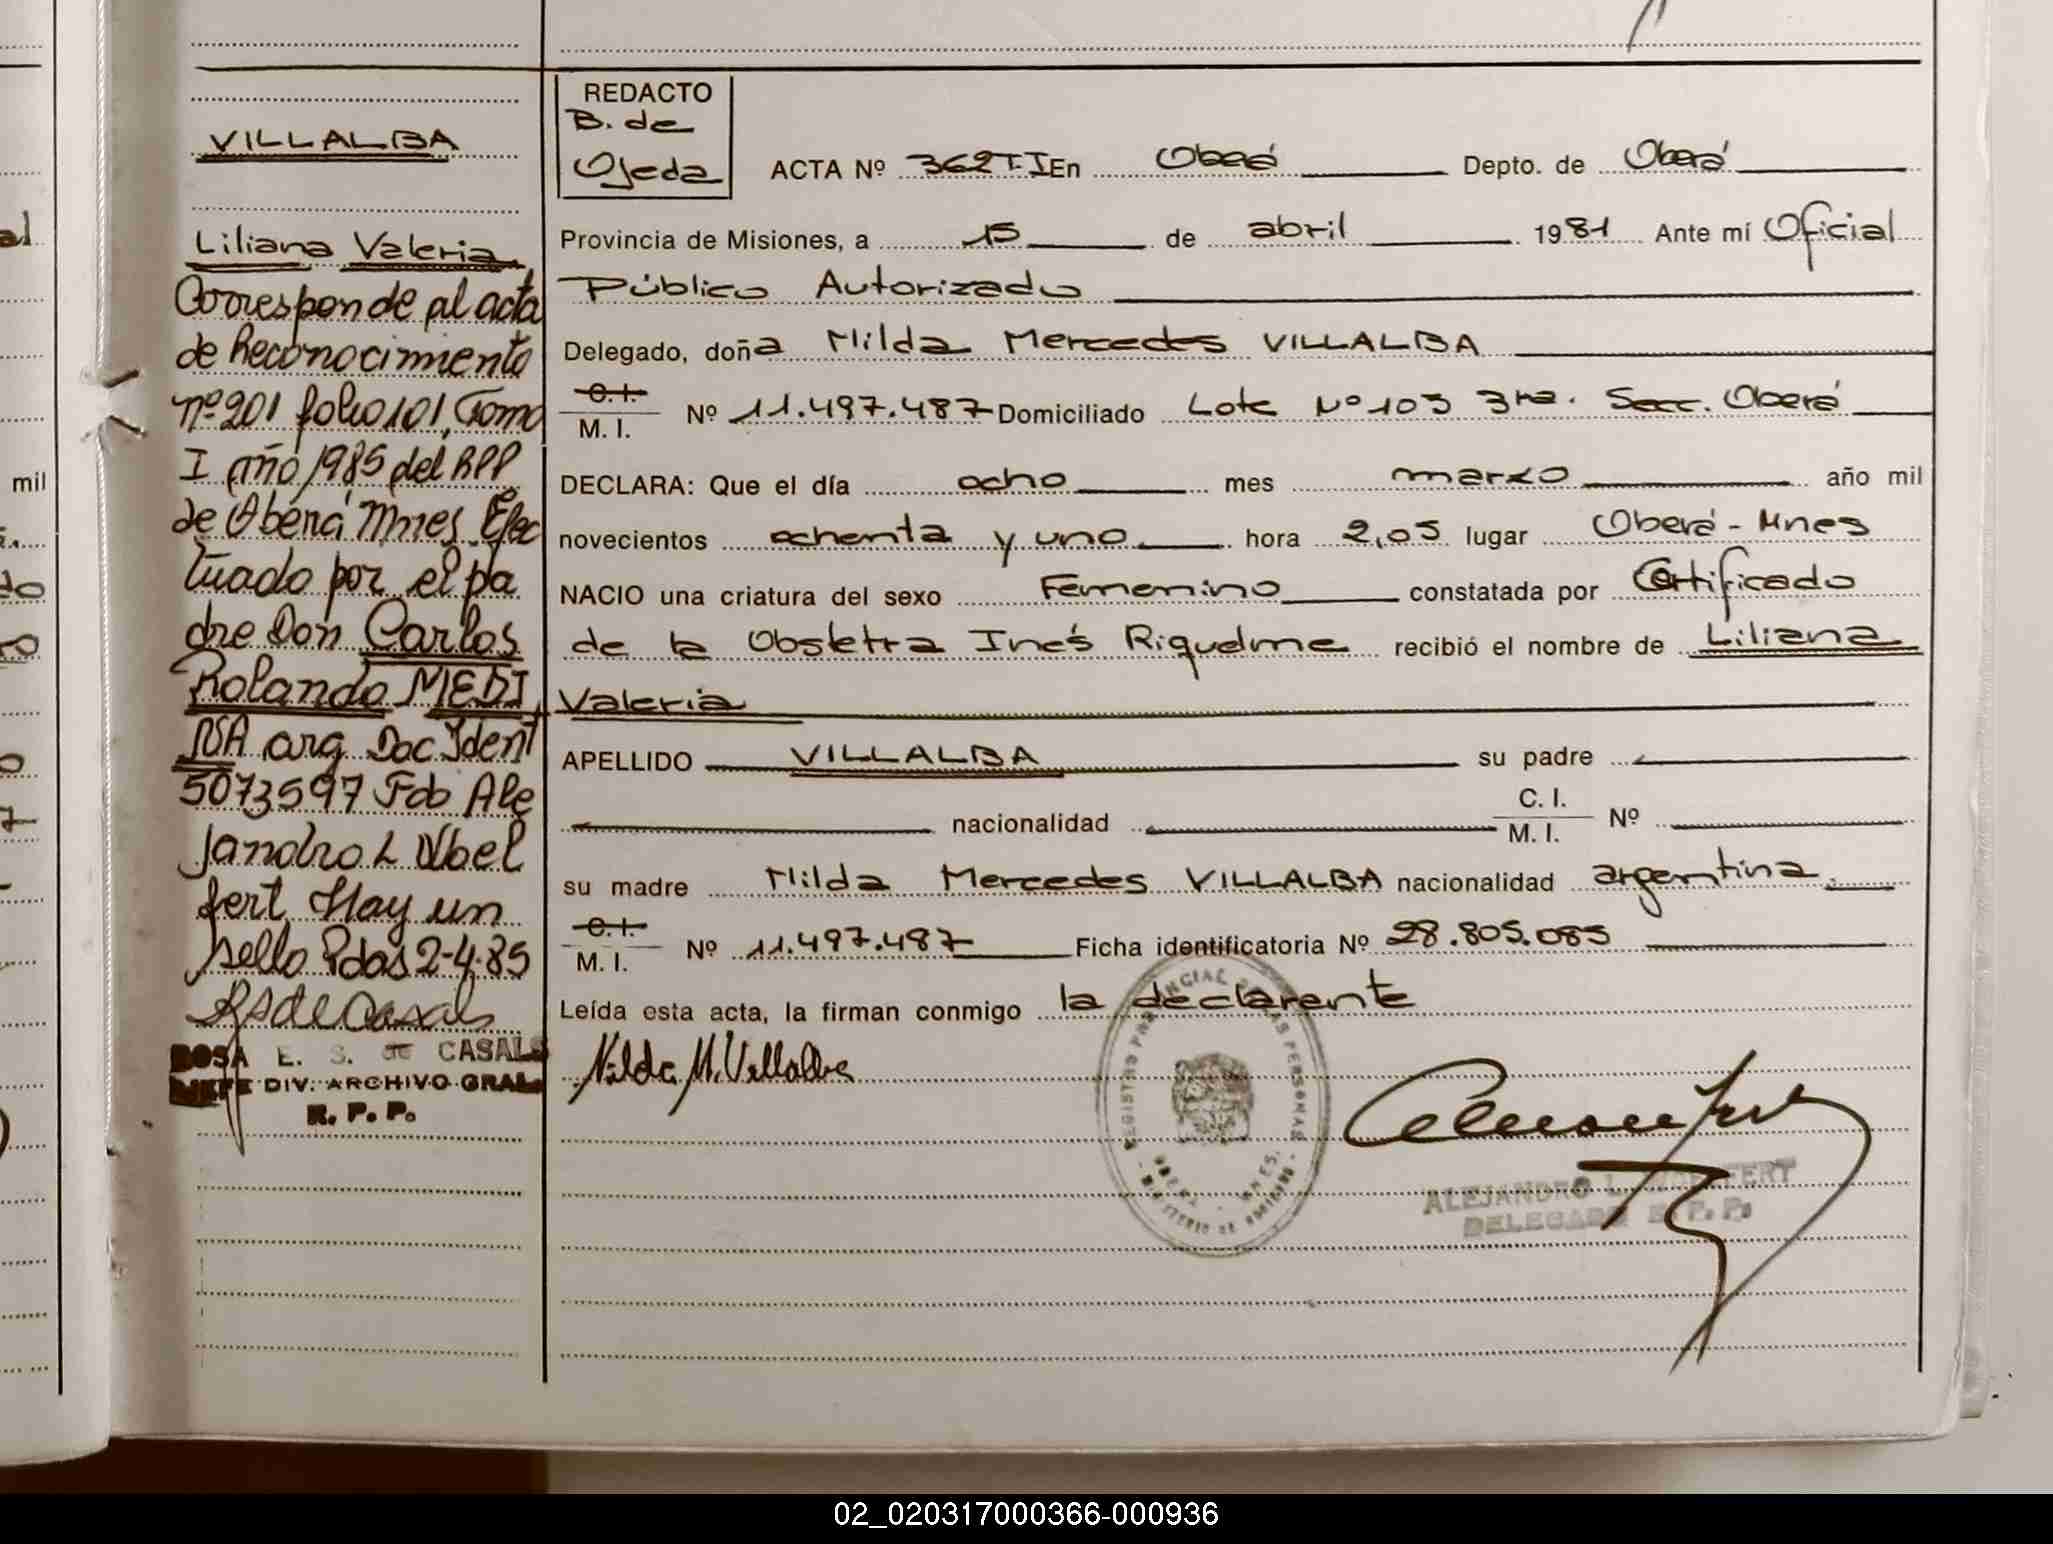 VILLALBA
Liliana Valeria
Corresponde al acta
de Reconocimiento
Nº 201 folio 101, Tomo
I año 1985 del RPP
de Oberá Mnes. Efec
tuado por el pa
dre Don Carlos
Rolando MEDI
NSA arg. Doc. Ident
5073597 Fdo Ale
jandro L Wbel
fert Hay un
sello Pdas 2-4-85
RSdeCasals
ROSA E. S. de CASALS
JEFE DIV. ARCHIVO GRAL.
R. P. P.
REDACTO
B. de
Ojeda
ACTA Nº 362T.I En Oberá Depto. de Oberá
Provincia de Misiones, a 15 de abril 1981 Ante mí Oficial
Público Autorizado
Delegado, doña Nilda Mercedes VILLALBA
C. I.
M. I. Nº 11.497.487 Domiciliado Lote Nº 103 3ra. Secc. Oberá
DECLARA: Que el día ocho mes marzo año mil
novecientos ochenta y uno hora 2,05 lugar Oberá - Mnes
NACIO una criatura del sexo Femenino constatada por Certificado
de la Obstetra Inés Riquelme recibió el nombre de Liliana
Valeria
APELLIDO VILLALBA su padre
nacionalidad C. I.
M. I. Nº
su madre Nilda Mercedes VILLALBA nacionalidad argentina
C. I.
M. I. Nº 11.497.487 Ficha identificatoria Nº 28.805.085
Leída esta acta, la firman conmigo la declarente
Nilda M. Villalba
REGISTRO PROVINCIAL DE LAS PERSONAS
OBERA - MNES.
MINISTERIO DE GOBIERNO
ALEJANDRO L. WOLFFERT
DELEGADO R. P. P.
al
mil
do
02_020317000366-000936